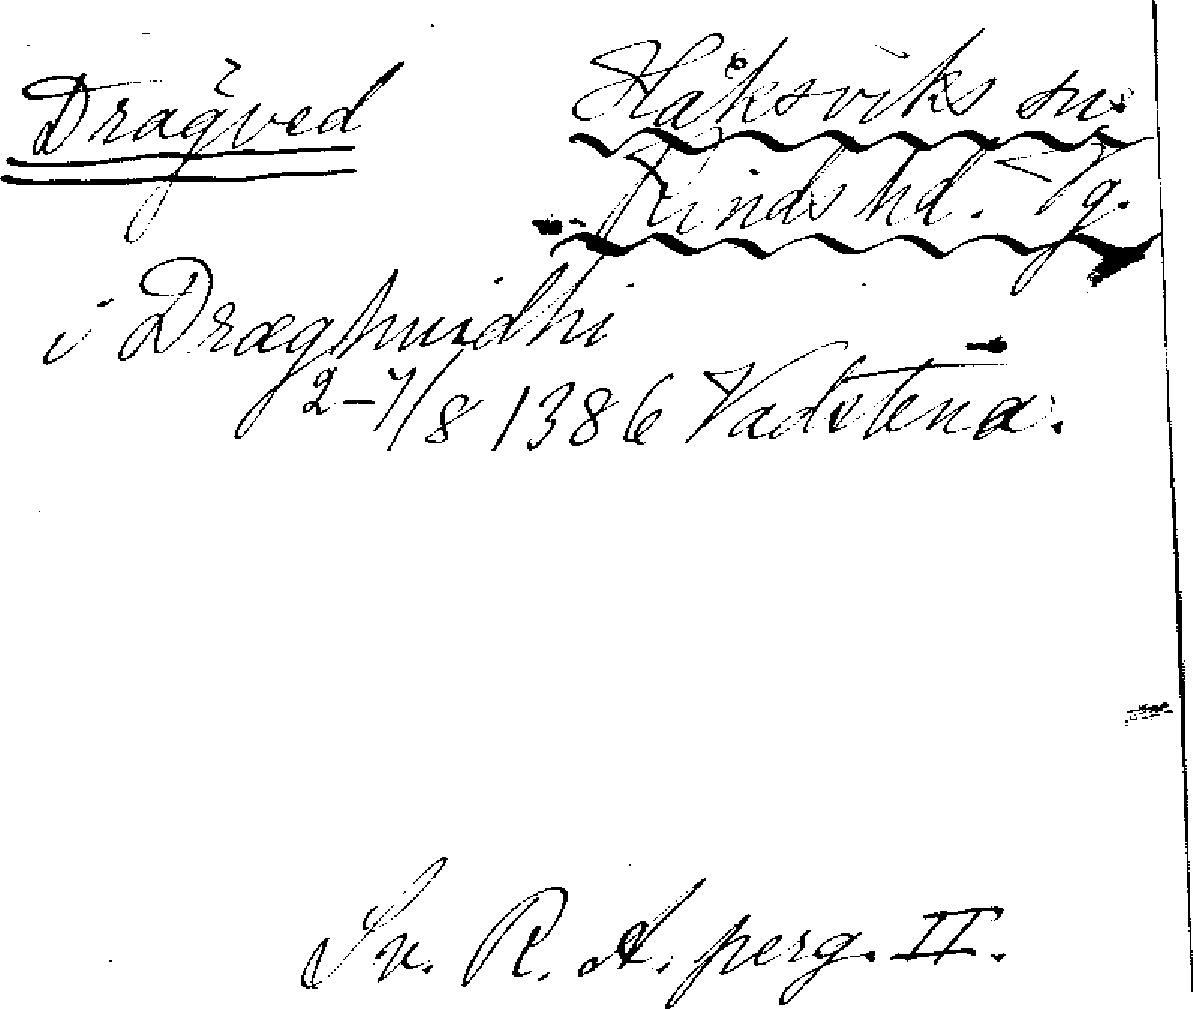 Dragved
Håksviks sn.
Kinds hd. Vg.
i Dræghuidhi
2-7/8 1386 Vadstena.
Sv. R. A. perg. II.